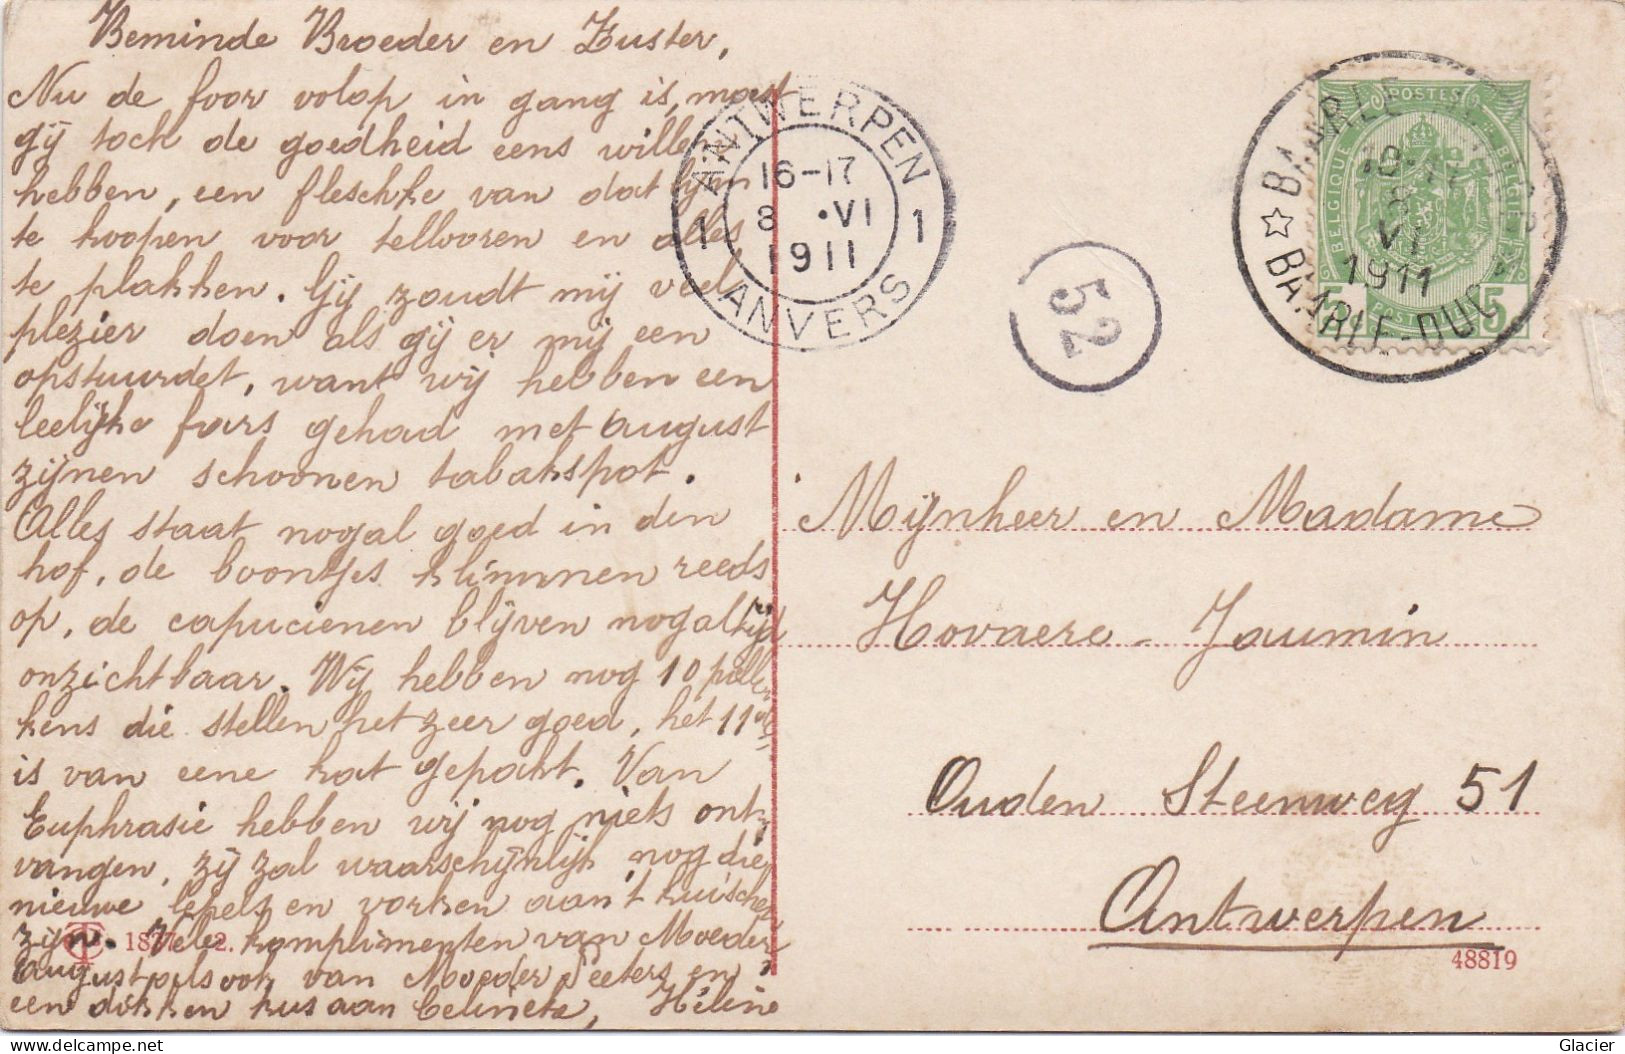 Beminde Broeder en Zuster,
Nu de foor volop in gang is, moest
gij toch de goedheid eens willen
hebben, een fleschke van dat lijm
te koopen voor tellooren en alles
te plakken. Gij zoudt mij veel
plezier doen als gij er mij een
opstuurdet, want wij hebben een
leelijke fars gehad met august
zijnen schoonen tabakspot.
Alles staat nogal goed in den
hof, de boontjes klimmen reeds
op, de capucienen blijven nogaltijd
onzichtbaar. Wij hebben nog 10 pullen
kens die stellen het zeer goed, het 11de
is van eene kat gepakt. Van
Euphrasie hebben wij nog niets ont-
vangen, zij zal waarschijnlijk nog die
nieuwe lepels en vorken aan 't kuischen
zijn. Vele komplimenten van Moeder
August ook van Moeder Peeters en
een dikken kus aan Celineke, Hélène
ANTWERPEN
1 16-17 1
8 VI
1911
ANVERS
52
BAARLE
VI
1911
BAARLE-DUC
POSTES
BELGIQUE
BELGIE
5 5
Mijnheer en Madame
Hovaere - Jaumin
Ouden Steenweg 51
Antwerpen
48819
delcampe.net
Glacier